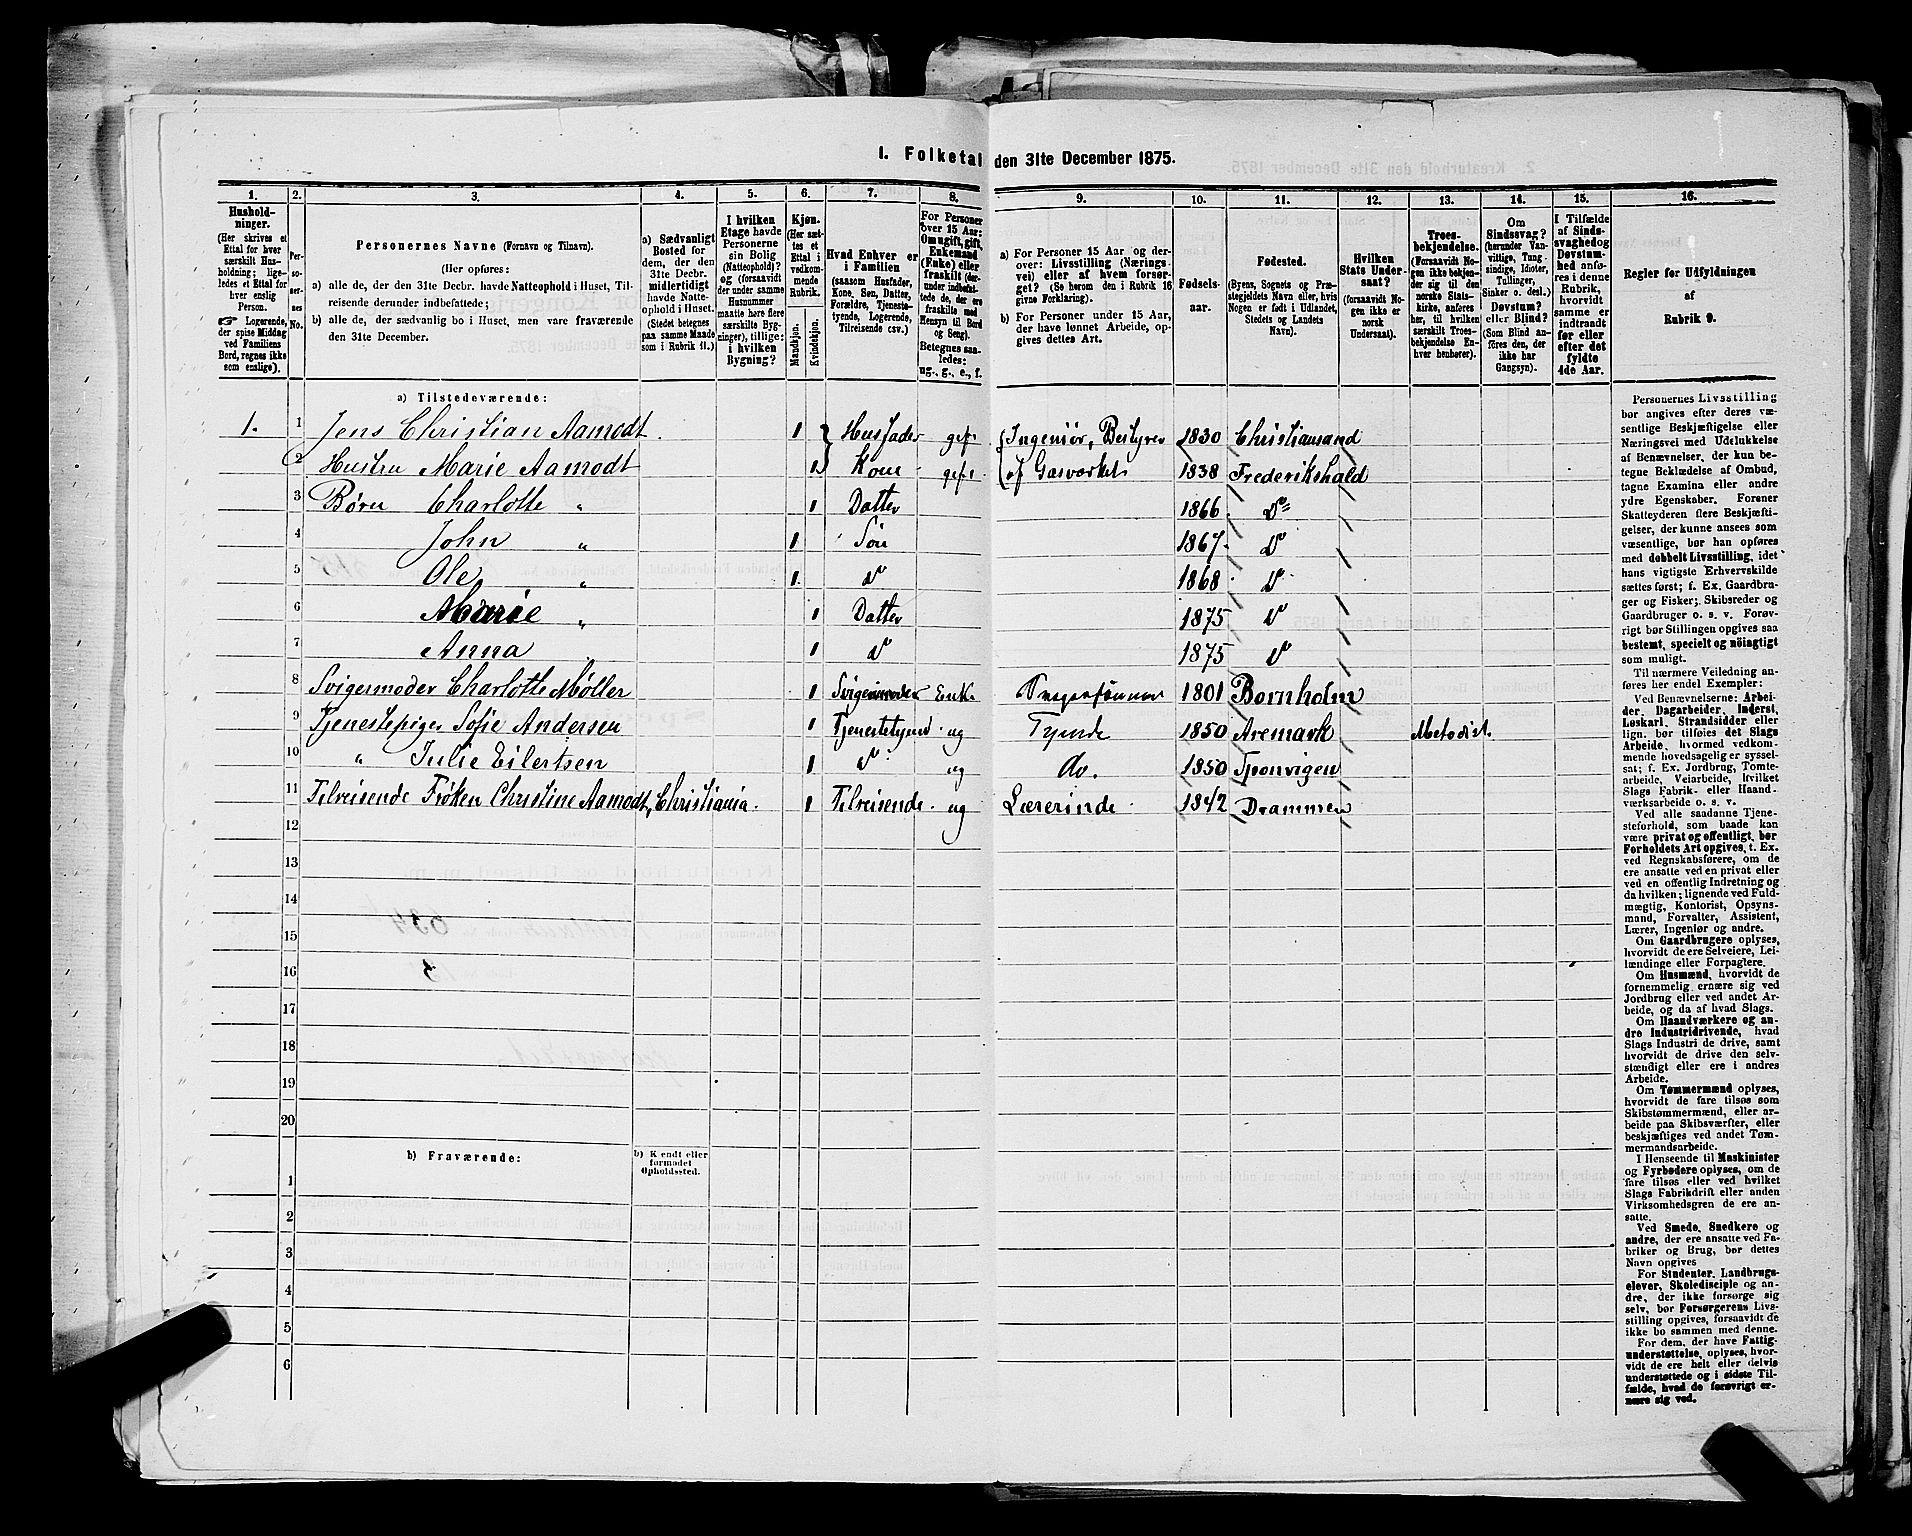 I. Folketal den 31te December 1875.
1. 2. 3. 4. 5. 6. 7. 8. 9. 10. 11. 12. 13. 14. 15. 16.
Hushold-
ninger.
(Her skrives et
Ettal for hver
særskilt Hus-
holdning; lige-
ledes et Ettal for
hver enslig
Person.
☞ Logerende,
der spise Middag
ved Familiens
Bord, regnes ikke
som enslige).
Per-
so-
ner-
nes
No.
Personernes Navne (Fornavn og Tilnavn).
(Her opføres:
a) alle de, der den 31te Decbr. havde Natteophold i Huset, Til-
reisende derunder indbefattede;
b) alle de, der sædvanlig bo i Huset, men vare fraværende
den 31te December.
a) Sædvanligt
Bosted for
dem, der den
31te Decbr.
midlertidigt
havde Natte-
ophold i Huset.
(Stedet betegnes
paa samme Maade
som i Rubrik 11.)
I hvilken
Etage havde
Personerne
sin Bolig
(Natteophold)?
og (forsaavidt
der under samme
Husnummer
maatte høre flere
særskilte Byg-
ninger), tillige:
i hvilken
Bygning?
Kjøn.
(Her sæt-
tes et
Ettal i
vedkom-
mende
Rubrik.
Mandkjøn.
Kvindekjøn.
Hvad Enhver er
i Familien
(saasom Husfader,
Kone, Søn, Datter,
Forældre, Tjeneste-
tyende, Logerende,
Tilreisende osv.).
For Personer
over 15 Aar:
Om ugift, gift,
Enkemand
(Enke) eller
fraskilt (der-
under indbefat-
tede de, der ere
fraskilte med
Hensyn til Bord
og Seng).
Betegnes saa-
ledes:
ug., g., e., f.
a) For Personer 15 Aar og der-
over: Livsstilling (Nærings-
vei) eller af hvem forsør-
get? (Se herom den i Rubrik 16
givne Forklaring).
b) For Personer under 15 Aar,
der have lønnet Arbeide, op-
gives dettes Art.
Fødsels-
aar.
Fødested.
(Byens, Sognets og Præ-
stegjeldets Navn eller, hvis
Nogen er født i Udlandet,
Stedets og Landets
Navn).
Hvilken
Stats Under-
saat?
(forsaavidt No-
gen ikke er
norsk
Undersaat).
Troes-
bekjendelse.
(Forsaavidt No-
gen ikke bekjen-
der sig til den
norske Stats-
kirke, anføres
her, til hvilken
særskilt Troes-
bekjendelse En-
hver henhører).
Om
Sindssvag?
(herunder Van-
vittige, Tung-
sindige, Idioter,
Tullinger,
Sinker o. desl.)
Døvstum?
eller Blind?
(Som Blind an-
føres den, der
ikke har
Gangsyn).
I Tilfælde
af Sinds-
svaghed og
Døvstum-
hed anfø-
res i denne
Rubrik,
hvorvidt
samme er
indtraadt
før eller
efter det
fyldte
4de Aar.
Regler for Udfyldningen
af
Rubrik 9.
a) Tilstedeværende:
1. 1 Jens Christian Aamodt. 1 Husfader gift Ingeniør, Bestyrer 1830 Christiansand
2 Hustru Marie Aamodt 1 Kone gift af Gasværket 1838 Frederikshald
3 Børn Charlotte " 1 Datter 1866 Do
4 John " 1 Søn 1867 Do
5 Ole " 1 Do 1868 Do
6 Marie " 1 Datter 1875 Do
7 Anna 1 Do 1875 Do
8 Svigermoder Charlotte Møller 1 Svigermoder Enke 1801 Bornholm
9 Tjenestepiger Sofie Andersen 1 Tjenestetyend ug Tyende 1850 Aremark Metodist.
10 " Julie Eilertsen 1 Do ug do. 1850
11 Tilreisende Frøken Christine Aamodt, Christiania. 1 Tilreisende ug Lærerinde 1842 Drammen
12
13
14
15
16
17
18
19
20
b) Fraværende: b) Kjendt eller
formodet
Opholdssted.
1
2
3
4
5
6
Personernes Livsstilling
bør angives efter deres væ-
sentlige Beskjæftigelse eller
Næringsvei med Udelukkelse
af Benævnelser, der kun be-
tegne Beklædelse af Ombud,
tagne Examina eller andre
ydre Egenskaber. Forener
Skatteyderen flere Beskjæfti-
gelser, der kunne ansees som
væsentlige, bør han opføres
med dobbelt Livsstilling, idet
hans vigtigste Erhvervskilde
sættes først; f. Ex. Gaardbru-
ger og Fisker; Skibsreder og
Gaardbruger o. s. v. Forøv-
rigt bør Stillingen opgives saa
bestemt, specielt og nöiagtigt
som muligt.
Til nærmere Veiledning an-
føres her endel Exempler:
Ved Benævnelserne: Arbei-
der, Dagarbeider, Inderst,
Løskarl, Strandsidder eller
lign. bør tilføies det Slags
Arbeide, hvormed vedkom-
mende hovedsagelig er syssel-
sat; f. Ex. Jordbrug, Tomte-
arbeide, Veiarbeide, hvilket
Slags Fabrik- eller Haand-
værksarbeide o. s. v.
Ved alle saadanne Tjen-
esteforhold, som baade kan
være privat og offentligt, bør
Forholdets Art opgives, t. Ex.
ved Regnskabsførere, om de
ere ansatte ved en privat eller
ved en offentlig Indretning og
da hvilken; lignende ved Fuld-
mægtig, Kontorist, Opsyns-
mand, Forvalter, Assistent,
Lærer, Ingeniør og andre.
Om Gaardbrugere oplyses,
hvorvidt de ere Selveiere, Lei-
lændinge eller Forpagtere.
Om Husmænd, hvorvidt de
fornemmelig ernære sig ved
Jordbrug eller ved andet Ar-
beide, og da af hvad Slags.
Om Haandværkere og an-
dre Industridrivende, hvad
Slags Industri de drive, samt
hvorvidt de drive den selv-
stændigt eller ere i andres
Arbeide.
Om Tømmermænd oplyses,
hvorvidt de fare tilsøs som
Skibstømmermænd, eller ar-
beide paa Skibsværfter, eller
beskjæftiges ved andet Tøm-
mermandsarbeide.
I Henseende til Maskinister
og Fyrbødere oplyses, om de
fare tilsøs eller ved hvilket
Slags Fabrikdrift eller anden
Virksomhedsgren de ere an-
satte.
Ved Smede, Snedkere og
andre, der ere ansatte ved Fa-
briker og Brug, bør dettes
Navn opgives
For Studenter, Landbrugs-
elever, Skoledisciple og an-
dre, der ikke forsørge sig
selv, bør Forsørgerens Livs-
stilling opgives, forsaavidt de
ikke bo sammen med denne.
For dem, der have Fattig-
understøttelse, oplyses, hvor-
vidt de ere helt eller delvis
understøttede og i sidste Til-
fælde, hvad de forøvrigt er-
nære sig ved.